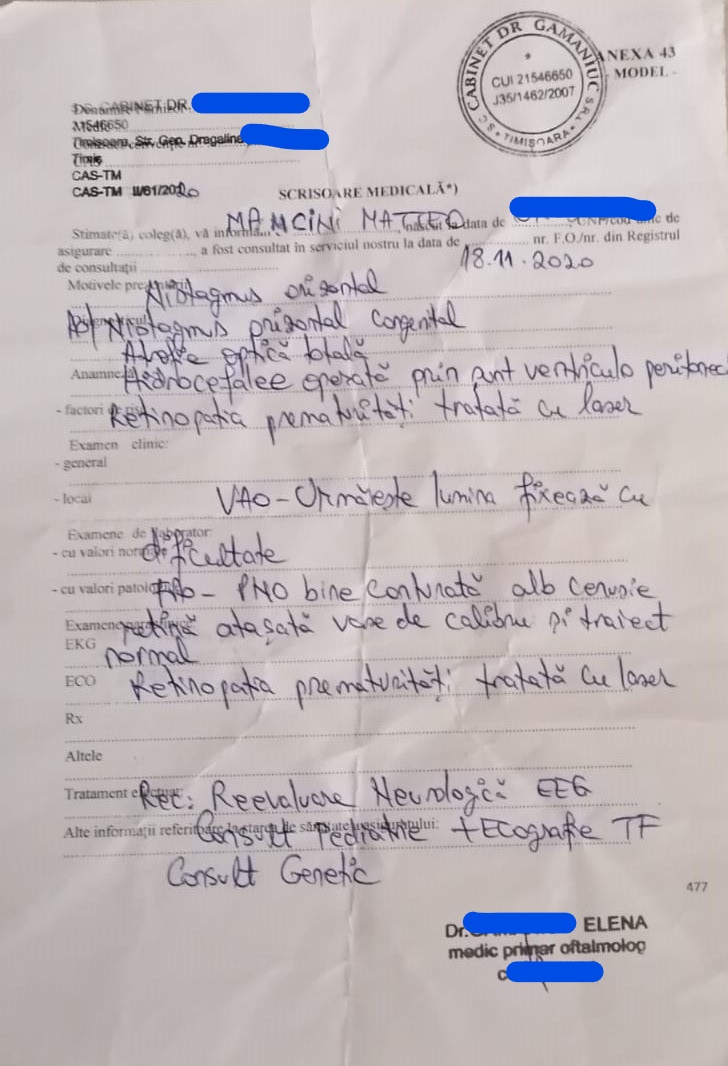 CABINET DR. GAMANIUC SRL
SC
* TIMIȘOARA *
CUI 21546650
J35/1462/2007
ANEXA 43
- MODEL -
CABINET DR.
21546650
Timisoara, Str. Gen. Dragalina
Timis
CAS-TM
CAS-TM II/61/2020
SCRISOARE MEDICALĂ*)
Stimate(ă) coleg(ă), vă informăm MANCINI MATTEO născut la data de CNP/cod unic de
asigurare, a fost consultat în serviciul nostru la data de 18.11.2020 nr. F.O./nr. din Registrul
de consultații
Motivele Nistagmus orizontal
Nistagmus orizontal Congenital
Atrofie optică totală
Anamneza Hidrocefalee operată prin șunt ventriculo
- factori de Retinopatia prematurității tratată cu laser
Examen clinic:
- general
- local VAO - Urmărește lumina fixează cu
Examene de laborator:
- cu valori dificultate
- cu valori - PNO bine conturată alb cenusie
Examene retină atașată vase de calibru și traiect
EKG normal
ECO Retinopatia prematurității tratată cu laser
Rx
Altele
Tratament efectuat: Rec: Reevaluare Neurologică EEG
Alte informații referitoare la starea de sănătate a Consult Pediatrie + Ecografie TF
Consult Genetic
477
Dr. ELENA
medic primar oftalmolog